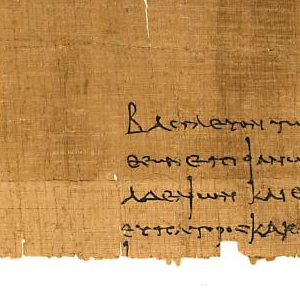 Βασιλευοντω
θεωνεπιφανω
αδελφων και ε
ευπατορος και